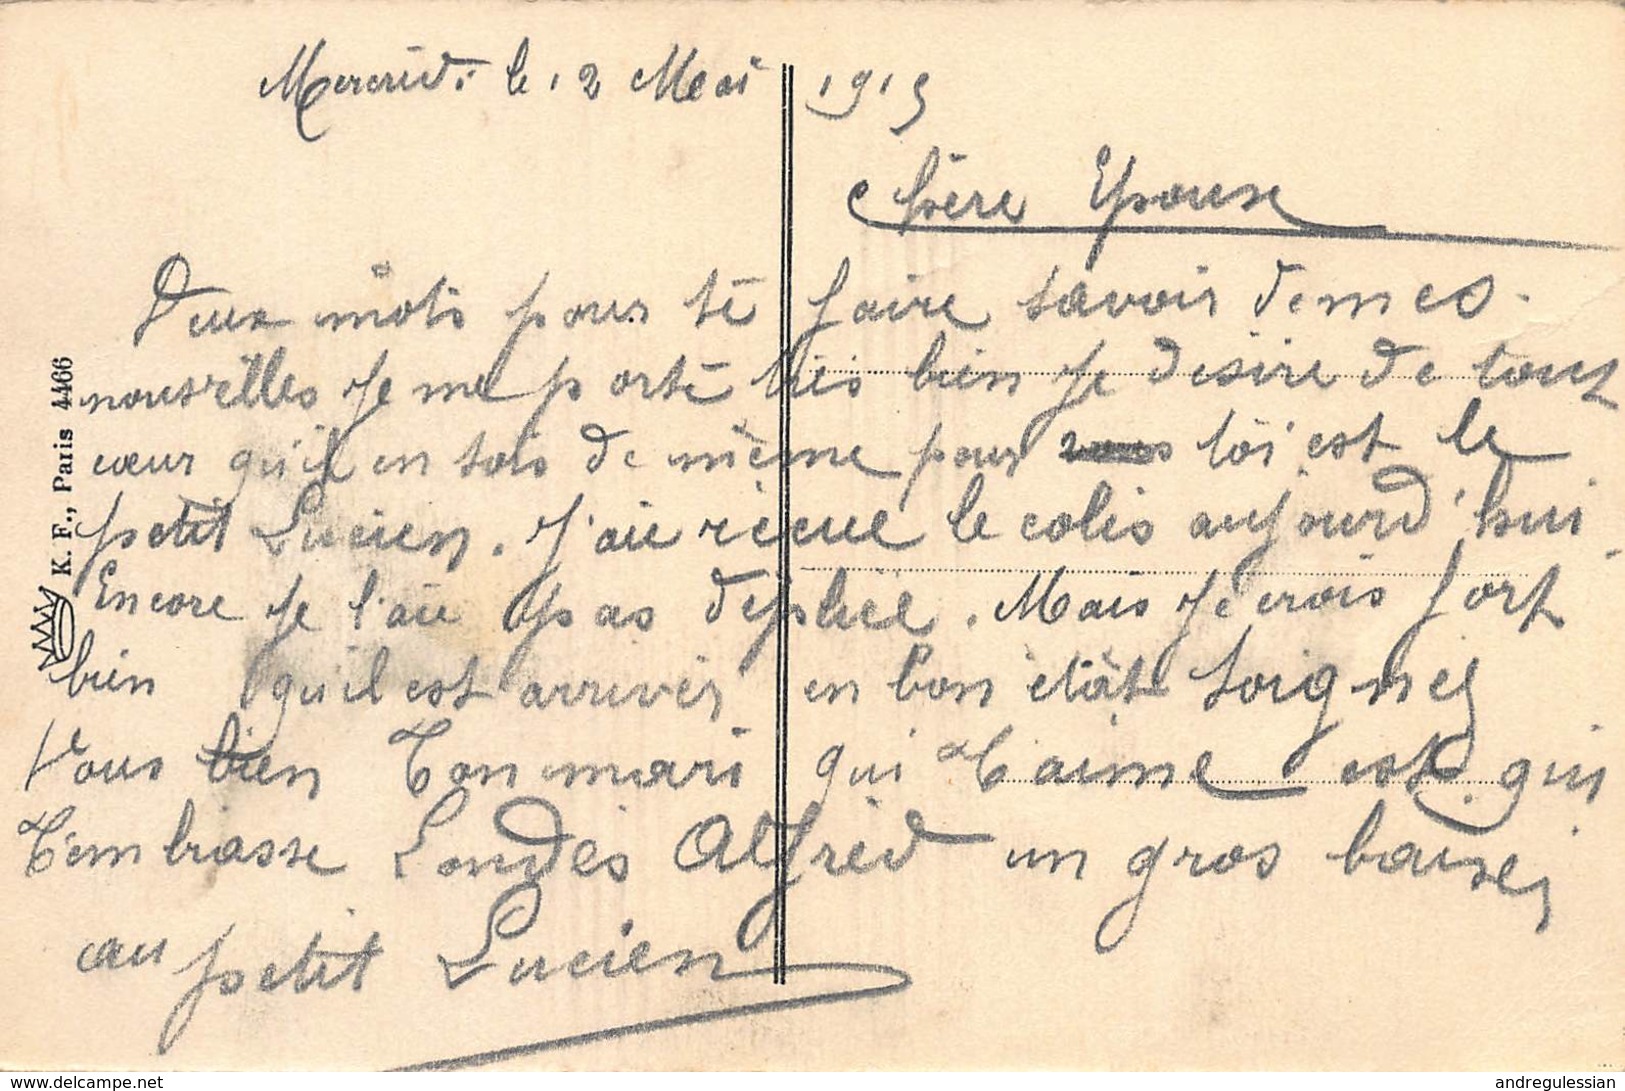 Mercredi le 12 Mai 1915
Chère Epouse
Deux mots pour te faire savoir de mes
nouvelles Je me porte très bien Je desire de tout
cœur qu'il en sois de même pour toi est le
petit Lucien. J'ai récue le colis aujourd'hui
Encore Je l'aie pas déplieé. Mais Je crois fort
bien qu'il est arrivés en bon étât Soignes
Vous bien Ton mari qui T'aime est qui
T'embrasse Londes Alfred un gros baiser
au petit Lucien
K. F., Pais 4466
http://www.delcampe.net
andregulessian